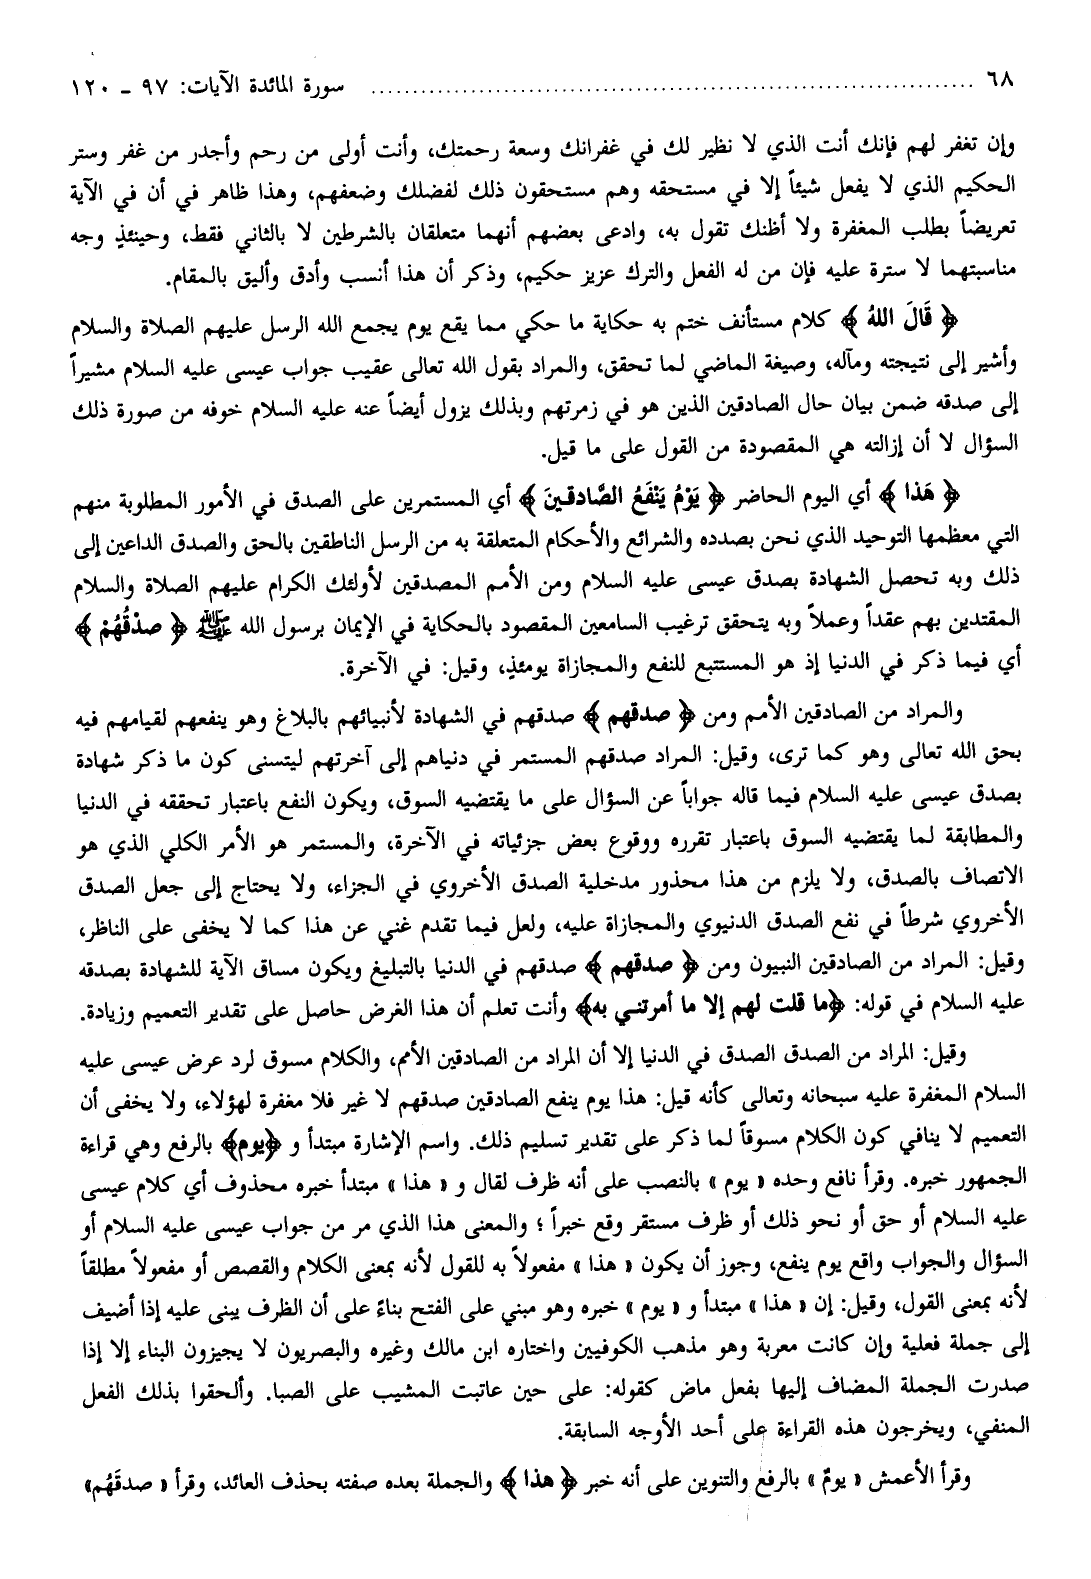 ٦٨ ........................................................................ سورة المائدة الآيات: ٩٧ ـ ١٢٠
وإن تغفر لهم فإنك أنت الذي لا نظير لك في غفرانك وسعة رحمتك، وأنت أولى من رحم وأجدر من غفر وستر
الحكيم الذي لا يفعل شيئاً إلا في مستحقه وهم مستحقون ذلك لفضلك وضعفهم، وهذا ظاهر في أن في الآية
تعريضاً بطلب المغفرة ولا أظنك تقول به، وادعى بعضهم أنهما متعلقان بالشرطين لا بالثاني فقط، وحينئذٍ وجه
مناسبتهما لا سترة عليه فإن من له الفعل والترك عزيز حكيم، وذكر أن هذا أنسب وأدق وأليق بالمقام.
﴿ قَالَ اللهُ ﴾ كلام مستأنف ختم به حكاية ما حكي مما يقع يوم يجمع الله الرسل عليهم الصلاة والسلام
وأشير إلى نتيجته ومآله، وصيغة الماضي لما تحقق، والمراد بقول الله تعالى عقيب جواب عيسى عليه السلام مشيراً
إلى صدقه ضمن بيان حال الصادقين الذين هو في زمرتهم وبذلك يزول أيضاً عنه عليه السلام خوفه من صورة ذلك
السؤال لا أن إزالته هي المقصودة من القول على ما قيل.
﴿ هَذا ﴾ أي اليوم الحاضر ﴿ يَوْمُ يَنْفَعُ الصَّادقينَ ﴾ أي المستمرين على الصدق في الأمور المطلوبة منهم
التي معظمها التوحيد الذي نحن بصدده والشرائع والأحكام المتعلقة به من الرسل الناطقين بالحق والصدق الداعين إلى
ذلك وبه تحصل الشهادة بصدق عيسى عليه السلام ومن الأمم المصدقين لأولئك الكرام عليهم الصلاة والسلام
المقتدين بهم عقداً وعملاً وبه يتحقق ترغيب السامعين المقصود بالحكاية في الإيمان برسول الله ﷺ ﴿ صدْقُهُمْ ﴾
أي فيما ذكر في الدنيا إذ هو المستتبع للنفع والمجازاة يومئذٍ، وقيل: في الآخرة.
والمراد من الصادقين الأمم ومن ﴿ صدقهم ﴾ صدقهم في الشهادة لأنبيائهم بالبلاغ وهو ينفعهم لقيامهم فيه
بحق الله تعالى وهو كما ترى، وقيل: المراد صدقهم المستمر في دنياهم إلى آخرتهم ليتسنى كون ما ذكر شهادة
بصدق عيسى عليه السلام فيما قاله جواباً عن السؤال على ما يقتضيه السوق، ويكون النفع باعتبار تحققه في الدنيا
والمطابقة لما يقتضيه السوق باعتبار تقرره ووقوع بعض جزئياته في الآخرة، والمستمر هو الأمر الكلي الذي هو
الاتصاف بالصدق، ولا يلزم من هذا محذور مدخلية الصدق الأخروي في الجزاء، ولا يحتاج إلى جعل الصدق
الأخروي شرطاً في نفع الصدق الدنيوي والمجازاة عليه، ولعل فيما تقدم غني عن هذا كما لا يخفى على الناظر،
وقيل: المراد من الصادقين النبيون ومن ﴿ صدقهم ﴾ صدقهم في الدنيا بالتبليغ ويكون مساق الآية للشهادة بصدقه
عليه السلام في قوله: ﴿ما قلت لهم إلا ما أمرتني به﴾ وأنت تعلم أن هذا الغرض حاصل على تقدير التعميم وزيادة.
وقيل: المراد من الصدق الصدق في الدنيا إلا أن المراد من الصادقين الأمم، والكلام مسوق لرد عرض عيسى عليه
السلام المغفرة عليه سبحانه وتعالى كأنه قيل: هذا يوم ينفع الصادقين صدقهم لا غير فلا مغفرة لهؤلاء، ولا يخفى أن
التعميم لا ينافي كون الكلام مسوقاً لما ذكر على تقدير تسليم ذلك. واسم الإشارة مبتدأ و ﴿يوم﴾ بالرفع وهي قراءة
الجمهور خبره. وقرأ نافع وحده « يوم » بالنصب على أنه ظرف لقال و « هذا » مبتدأ خبره محذوف أي كلام عيسى
عليه السلام أو حق أو نحو ذلك أو ظرف مستقر وقع خبراً ؛ والمعنى هذا الذي مر من جواب عيسى عليه السلام أو
السؤال والجواب واقع يوم ينفع، وجوز أن يكون « هذا » مفعولاً به للقول لأنه بمعنى الكلام والقصص أو مفعولاً مطلقاً
لأنه بمعنى القول، وقيل: إن « هذا » مبتدأ و « يوم » خبره وهو مبني على الفتح بناءً على أن الظرف يبنى عليه إذا أضيف
إلى جملة فعلية وإن كانت معربة وهو مذهب الكوفيين واختاره ابن مالك وغيره والبصريون لا يجيزون البناء إلا إذا
صدرت الجملة المضاف إليها بفعل ماض كقوله: على حين عاتبت المشيب على الصبا. وألحقوا بذلك الفعل
المنفي، ويخرجون هذه القراءة على أحد الأوجه السابقة.
وقرأ الأعمش « يومٌ » بالرفع والتنوين على أنه خبر ﴿ هذا ﴾ والجملة بعده صفته بحذف العائد، وقرأ « صدقَهُم»